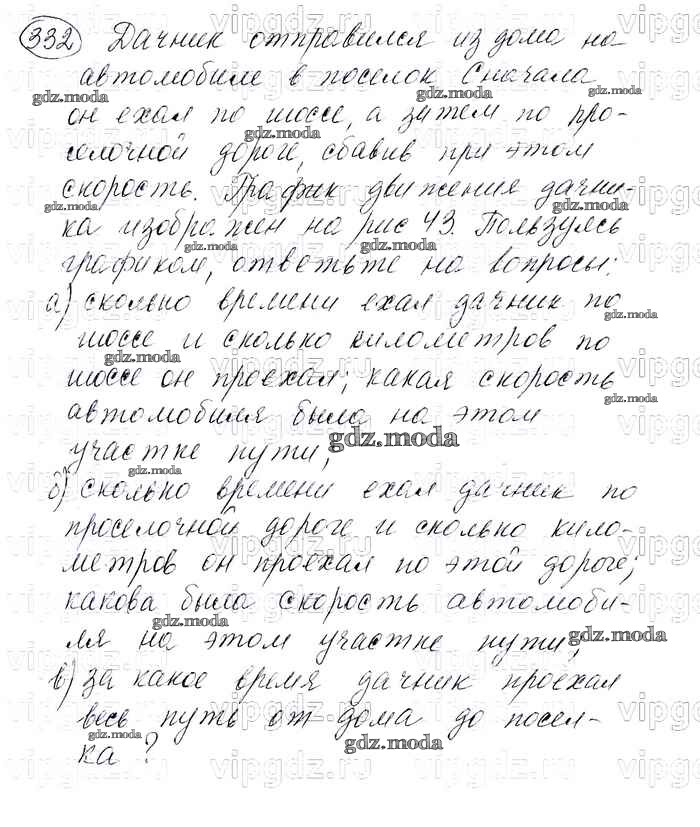 332 Дачник отправился из дома на
автомобиле в поселок Сначала
он ехал по шоссе, а затем по про-
селочной дороге, сбавив при этом
скорость. График движения дачни-
ка изображен на рис 43. Пользуясь
графиком, ответьте на вопросы:
а) сколько времени ехал дачник по
шоссе и сколько километров по
шоссе он проехал; какая скорость
автомобиля была на этом
участке пути;
б) сколько времени ехал дачник по
проселочной дороге и сколько кило-
метров он проехал по этой дороге;
какова была скорость автомоби-
ля на этом участке пути;
в) за какое время дачник проехал
весь путь от дома до посел-
ка?